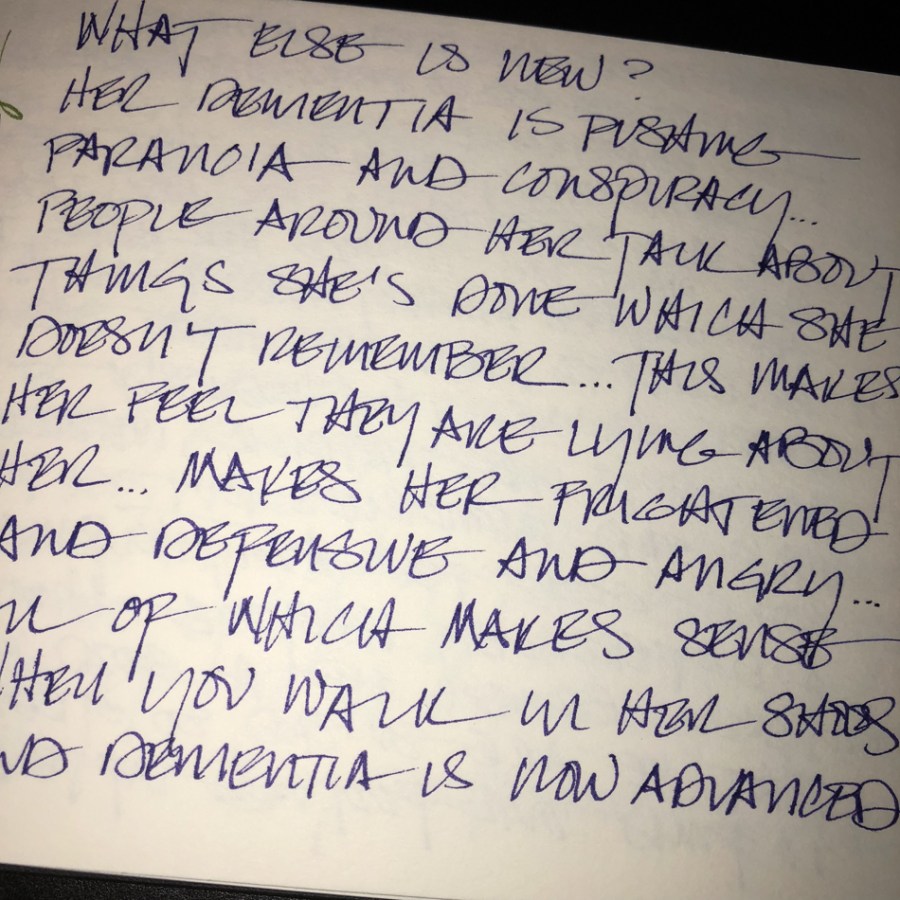 WHAT ELSE IS NEW?
HER DEMENTIA IS PUSHING
PARANOIA AND CONSPIRACY...
PEOPLE AROUND HER TALK ABOUT
THINGS SHE'S DONE WHICH SHE
DOESN'T REMEMBER... THIS MAKES
HER FEEL THEY ARE LYING ABOUT
HER... MAKES HER FRIGHTENED
AND DEFENSIVE AND ANGRY...
ALL OF WHICH MAKES SENSE
WHEN YOU WALK IN HER SHOES
AND DEMENTIA IS NOW ADVANCED